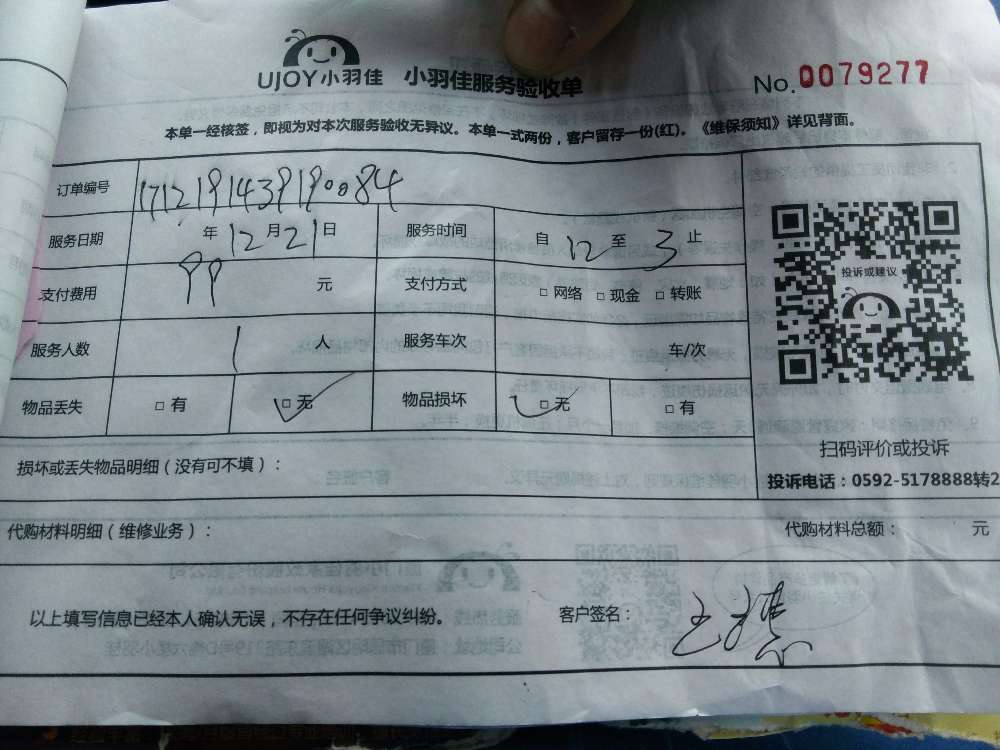 UJOY小羽佳 小羽佳服务验收单 No.0079277
本单一经核签，即视为对本次服务验收无异议。本单一式两份，客户留存一份(红)。《维保须知》详见背面。
订单编号 1712191439190084
服务日期 年 12月21日 服务时间 自 12 至 3 止
支付费用 99 元 支付方式 □网络 □现金 □转账
服务人数 1 人 服务车次 车/次
物品丢失 □有 □无 物品损坏 □无 □有
投诉或建议
扫码评价或投诉
投诉电话：0592-5178888转2
损坏或丢失物品明细（没有可不填）：
代购材料明细（维修业务）： 代购材料总额： 元
以上填写信息已经本人确认无误，不存在任何争议纠纷。 客户签名： 王